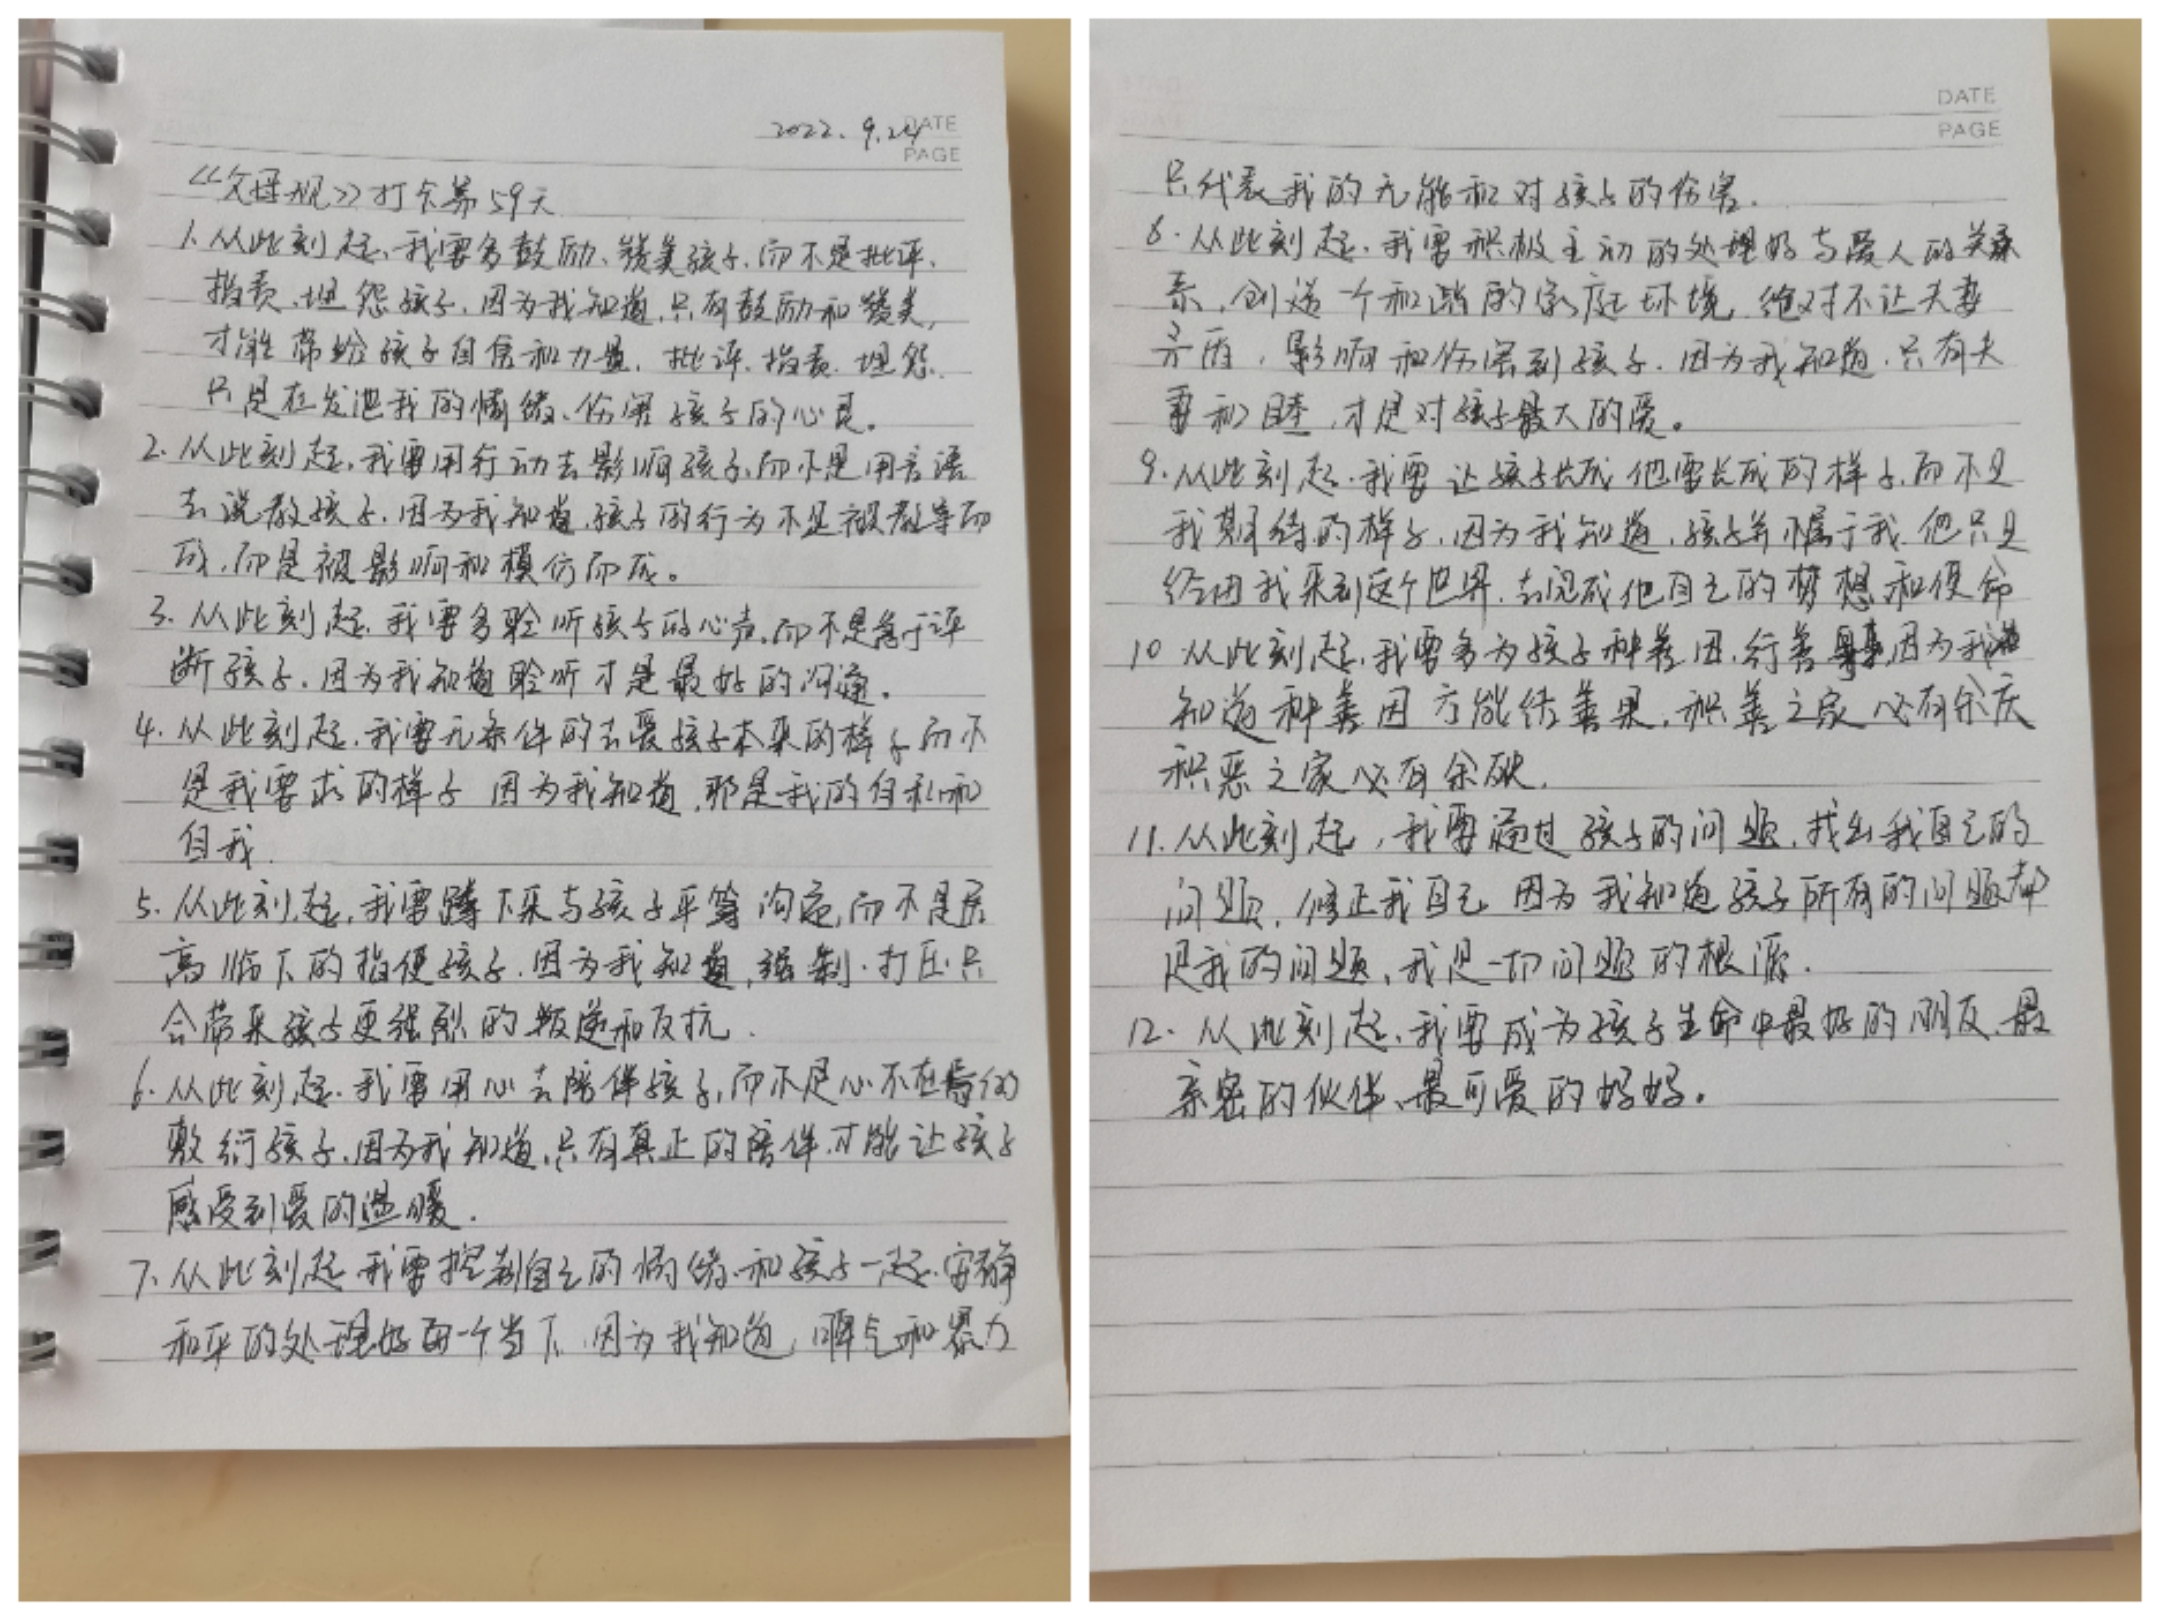 2022.9.24
DATE
PAGE
《父母规》打卡第59天
1.从此刻起、我要多鼓励、赞美孩子,而不是批评、
指责、埋怨孩子,因为我知道,只有鼓励和赞美,
才能带给孩子自信和力量,批评、指责、埋怨
只是在发泄我的情绪、伤害孩子的心灵。
2.从此刻起,我要用行动去影响孩子,而不是用言语
去说教孩子,因为我知道,孩子的行为不是被教导而
成,而是被影响和模仿而成。
3.从此刻起,我要多聆听孩子的心声,而不是急于评
断孩子,因为我知道聆听才是最好的沟通。
4.从此刻起,我要无条件的去爱孩子本来的样子而不
是我要求的样子 因为我知道,那是我的自私和
自我.
5.从此刻起,我要蹲下来与孩子平等沟通,而不是居
高临下的指使孩子,因为我知道,强制.打压只
会带来孩子更强烈的叛逆和反抗.
6.从此刻起.我要用心去陪伴孩子,而不是心不在焉的
敷衍孩子,因为我知道,只有真正的陪伴,才能让孩子
感受到爱的温暖.
7.从此刻起 我要控制自己的情绪、和孩子一起,安静
和平的处理好每一个当下 因为我知道,脾气和暴力
DATE
PAGE
只代表我的无能和对孩子的伤害.
8.从此刻起.我要积极主动的处理好与爱人的关系
系,创造一个和谐的家庭环境,绝对不让夫妻
矛盾,影响和伤害到孩子.因为我知道.只有夫
妻和睦,才是对孩子最大的爱。
9.从此刻起.我要让孩子长成他要长成的样子,而不是
我期待的样子,因为我知道,孩子并不属于我.他只是
经由我来到这个世界.去完成他自己的梦想和使命
10 从此刻起,我要多为孩子种善因,行善事,因为我
知道种善因方能结善果,积善之家必有余庆
积恶之家必有余殃.
11.从此刻起,我要通过孩子的问题,找出我自己的
问题,修正我自己 因为我知道孩子所有的问题都
是我的问题,我是一切问题的根源.
12.从此刻起、我要成为孩子生命中最好的朋友、最
亲密的伙伴、最可爱的妈妈。